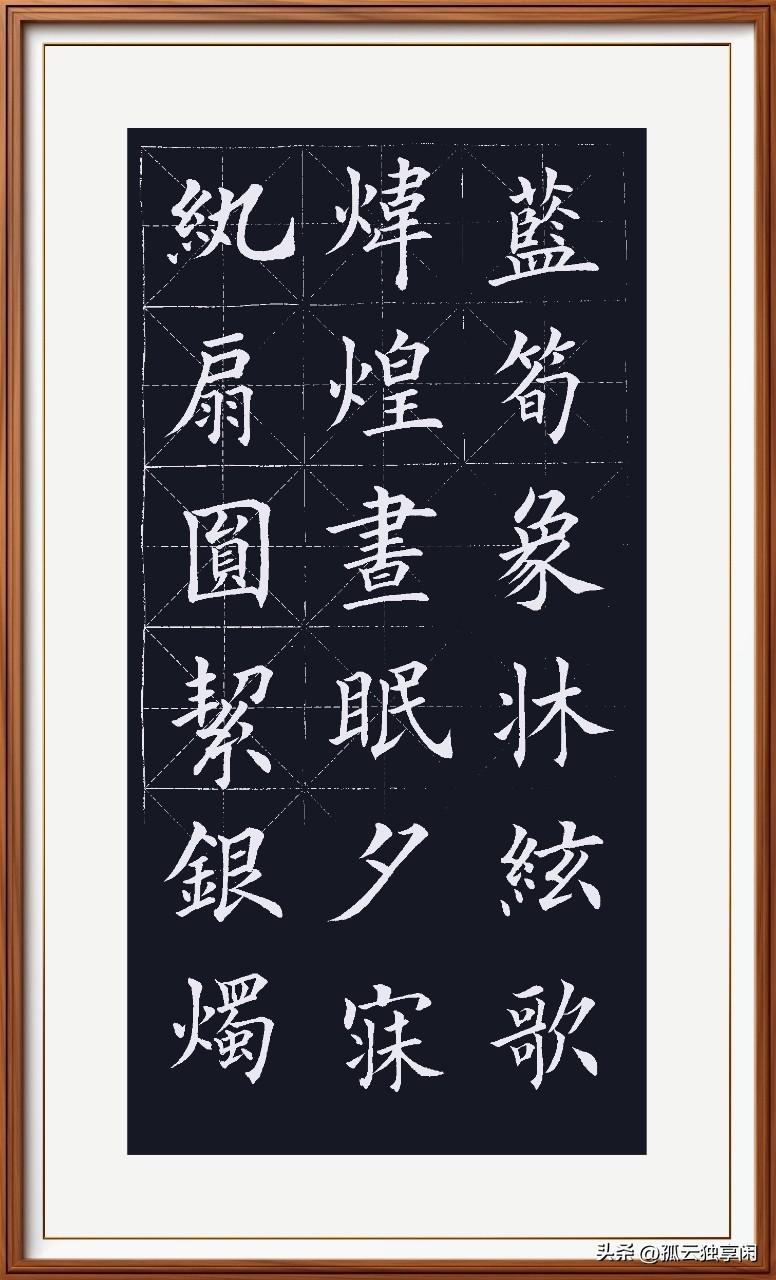 紈扇圓絜銀燭
煒煌晝眠夕寐
藍筍象牀絃歌
头条 @孤云独享闲